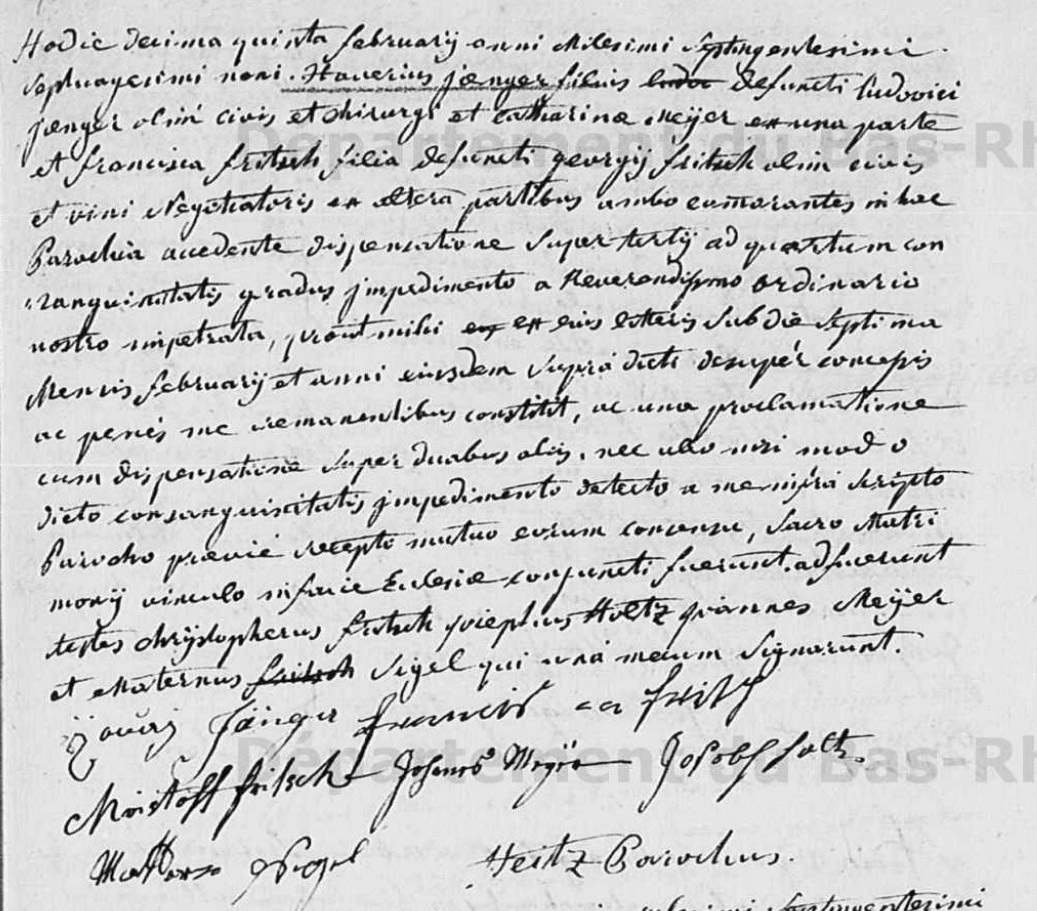 Hodie decima quinta februarij anni Milesimi Septingentesimi
septuagesimi noni. Haverius jænger filius ludov defuncti ludovici
jænger olim civis et chirurgi et catharinæ Meÿer ex una parte
et francisca fritsch filia defuncti georgij fritsch olim civis
et vini Negotiatoris ex altera partibus ambo comorantes in hac
Parochia accedente dispensatione super tertij ad quartum con
sanguinitatis gradus jmpedimento a Reverendissimo ordinario
nostro impetrata, prout mihi ex ex eius litteris sub die septima
Mensis februarij et anni eiusdem supra dicti desuper concessis
ac penes me remanentibus constitit, ac una proclamatione
cum dispensatione super duabus aliis, nec ullo nisi modo
dicto consanguinitatis jmpedimento detecto a me infra scripto
Parocho prævie recepto mutuo eorum concensu, sacro Matri
monij vinculo in facie Eclesiæ conjuncti fuerunt. adfuerunt
testes chrÿstopherus fritsch josephus Holtz joannes Meÿer
et Maternus fritsch Sigel qui una mecum signarunt.
Jänger francis ca fritsch
fritsch Johanes Meÿer Joseph holtz.
Sigel Heitz Parochus.